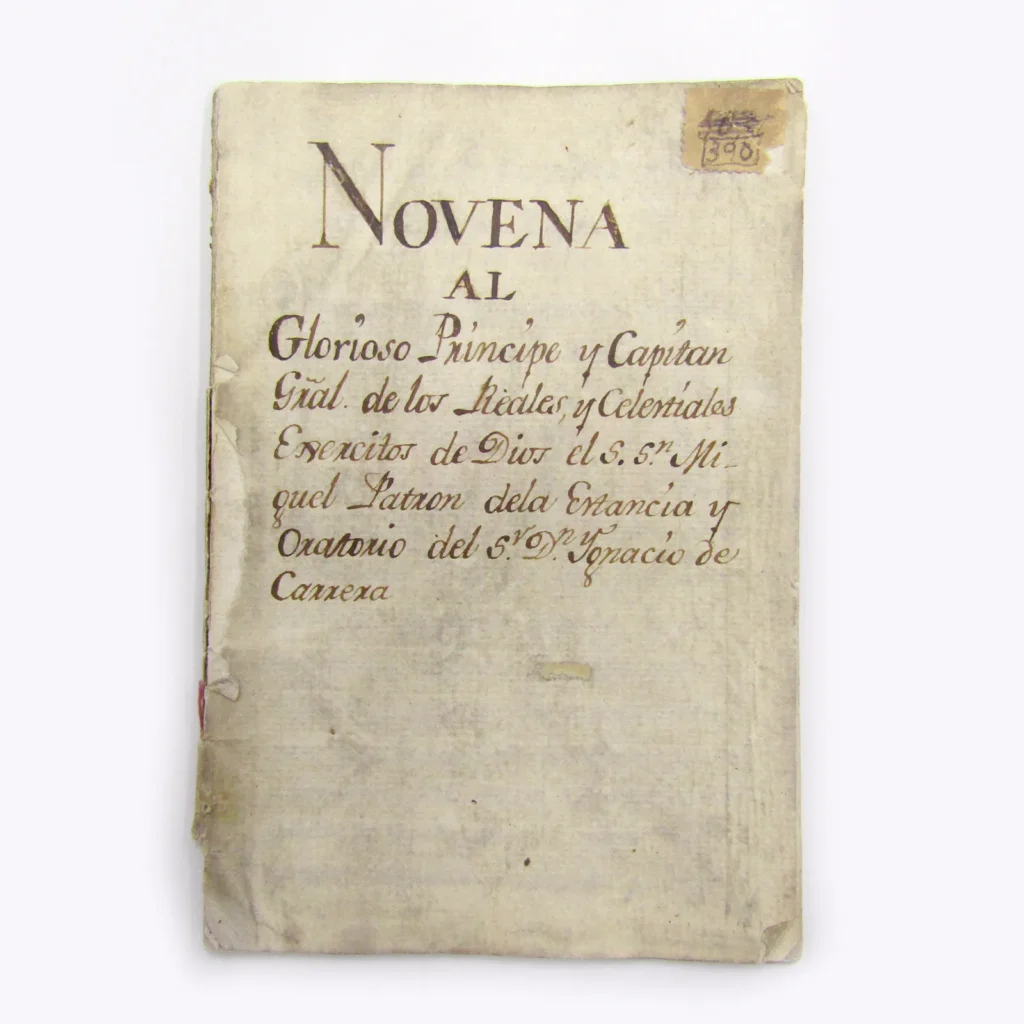 390
NOVENA
AL
Glorioso Principe y Capitan
Gr̃al. de los Reales, y Celestiales
Exercitos de Dios el S. Sn. Mi-
guel Patron dela Estancia y
Oratorio del Sr. Dn. Ygnacio de
Carrera